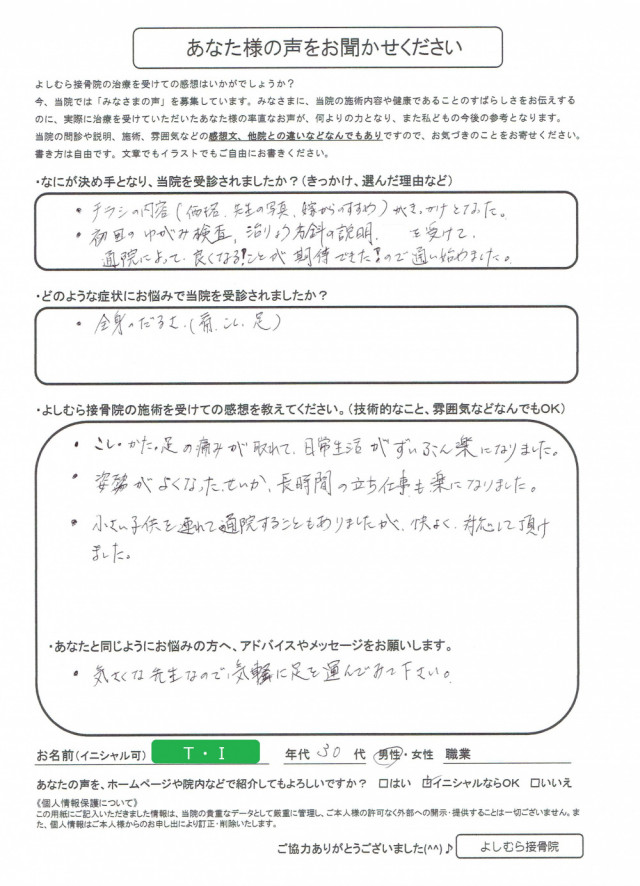 あなた様の声をお聞かせください
よしむら接骨院の治療を受けての感想はいかがでしょうか？
今、当院では「みなさまの声」を募集しています。みなさまに、当院の施術内容や健康であることのすばらしさをお伝えする
のに、実際に治療を受けていただいたあなた様の率直なお声が、何よりの力となり、また私どもの今後の参考となります。
当院の問診や説明、施術、雰囲気などの感想文、他院との違いなどなんでもありですので、お気づきのことをお寄せください。
書き方は自由です。文章でもイラストでもご自由にお書きください。
・なにが決め手となり、当院を受診されましたか？（きっかけ、選んだ理由など）
・チラシの内容（価格、先生の写真、嫁からのすすめ）がきっかけとなった。
・初回のゆがみ検査、治りょう方針の説明、を受けて、
通院によって、良くなる！ことが期待できた！ので通い始めました。
・どのような症状にお悩みで当院を受診されましたか？
・全身のだるさ、（肩、こし、足）
・よしむら接骨院の施術を受けての感想を教えてください。（技術的なこと、雰囲気などなんでもOK）
・こし・かた・足の痛みが取れて、日常生活がずいぶん楽になりました。
・姿勢がよくなったせいか、長時間の立ち仕事も楽になりました。
・小さい子供を連れて通院することもありましたが、快よく、対応して頂け
ました。
・あなたと同じようにお悩みの方へ、アドバイスやメッセージをお願いします。
・気さくな先生なので、気軽に足を運んでみて下さい。
お名前（イニシャル可） T・I 年代 30 代 男性・女性 職業
あなたの声を、ホームページや院内などで紹介してもよろしいですか？ □はい ☑イニシャルならOK □いいえ
《個人情報保護について》
この用紙にご記入いただきました情報は、当院の貴重なデータとして厳重に管理し、ご本人様の許可なく外部への開示・提供することは一切ございません。ま
た、個人情報はご本人様からのお申し出により訂正・削除いたします。
ご協力ありがとうございました(^^)♪ よしむら接骨院